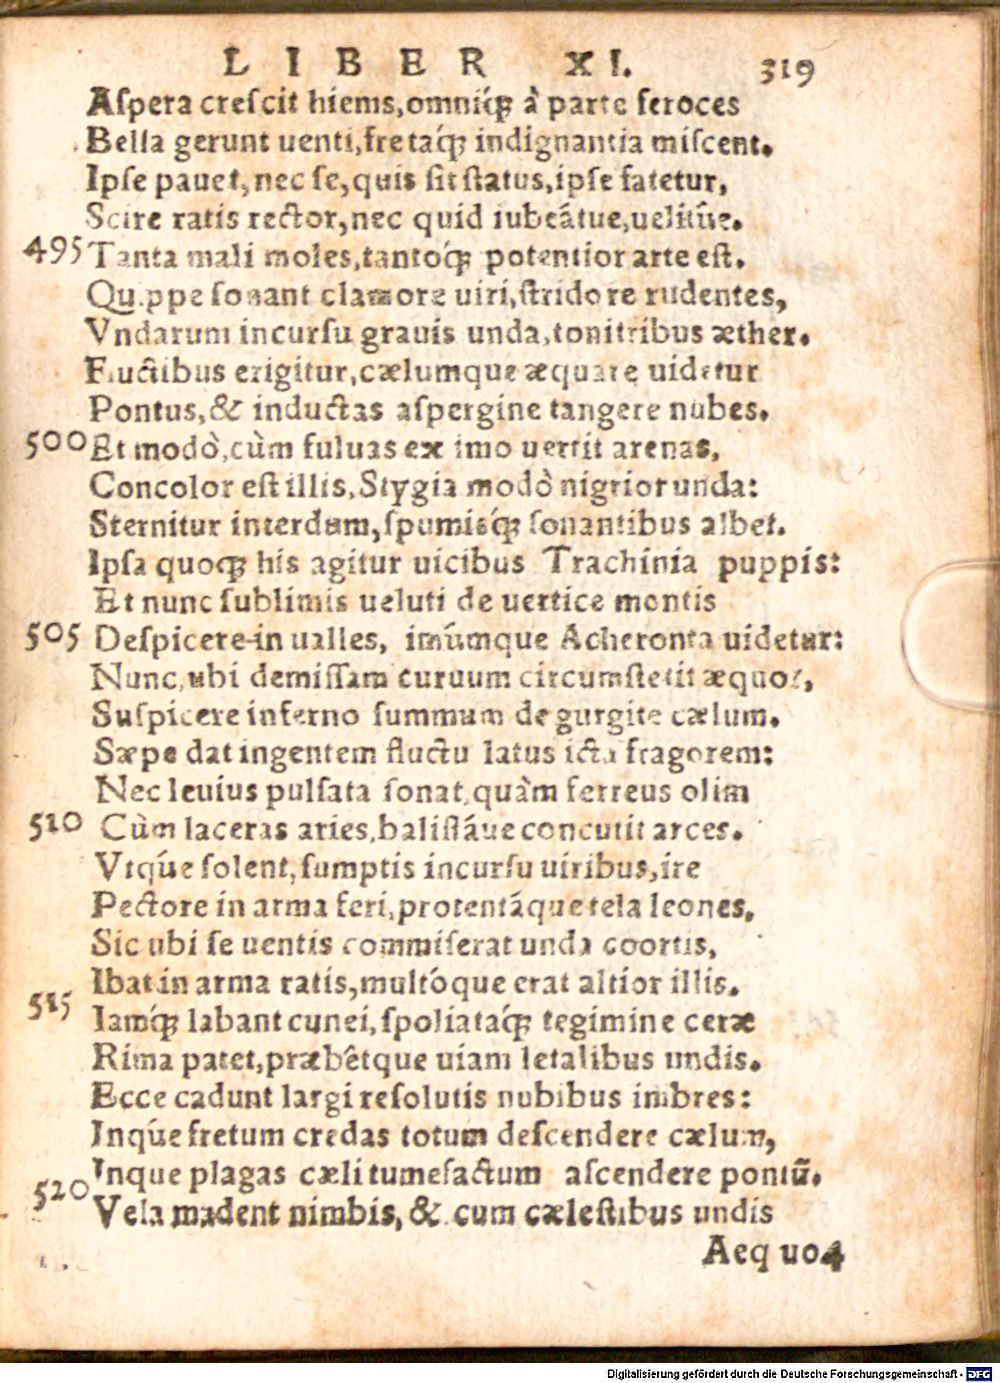 LIBER XI. 319
Aſpera creſcit hiems,omniq́ꝫ à parte feroces
Bella gerunt uenti,fretaq́ꝫ indignantia miſcent.
Ipſe pauet, nec ſe,quis ſit ſtatus,ipſe fatetur,
Scire ratis rector,nec quid iubeátue,uelitûe.
495 Tanta mali moles,tantoq́ꝫ potentior arte eſt.
Quippe ſonant clamore uiri,ſtridore rudentes,
Vndarum incurſu grauis unda,tonitribus æther.
Fluctibus erigitur,cælumque æquare uidetur
Pontus,& inductas aſpergine tangere nubes.
500 Et modò,cùm fuluas ex imo uertit arenas,
Concolor eſt illis,Stygia modò nigrior unda:
Sternitur interdum,ſpumiſq́ꝫ ſonantibus albet.
Ipſa quoqꝫ his agitur uicibus Trachinia puppis:
Et nunc ſublimis ueluti de uertice montis
505 Deſpicere in ualles, imúmque Acheronta uidetur:
Nunc,ubi demiſſam curuum circumſtetit æquor,
Suſpicere inferno ſummum de gurgite cælum.
Sæpe dat ingentem fluctu latus icta fragorem:
Nec leuius pulſata ſonat,quàm ferreus olim
510 Cùm laceras aries,baliſtáue concutit arces.
Vtq́ue ſolent,ſumptis incurſu uiribus,ire
Pectore in arma feri,protentáque tela leones,
Sic ubi ſe uentis commiſerat unda coortis,
Ibat in arma ratis,multóque erat altior illis.
515 Iamq́ꝫ labant cunei,ſpoliataq́ꝫ tegimine ceræ
Rima patet,præbêtque uiam letalibus undis.
Ecce cadunt largi reſolutis nubibus imbres:
Inq́ue fretum credas totum deſcendere cælum,
Inque plagas cæli tumefactum aſcendere pontũ.
520 Vela madent nimbis,& cum cæleſtibus undis
Aequo4
Digitalisierung gefördert durch die Deutsche Forschungsgemeinschaft - DFG